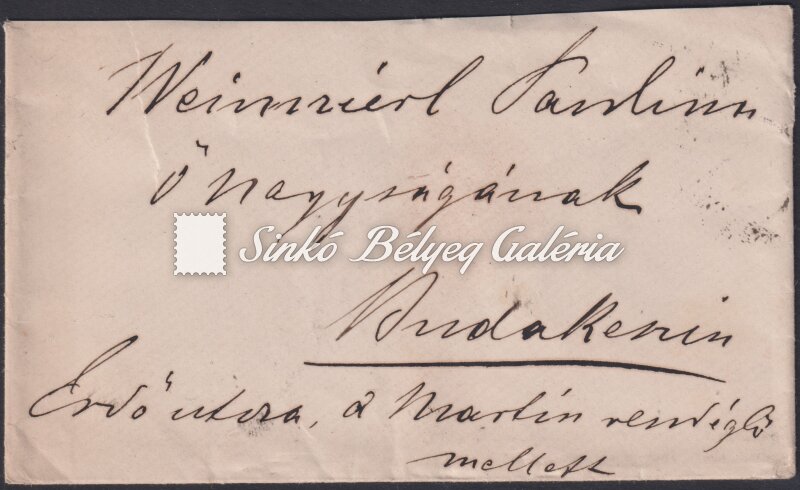 Weinzierl Paulina
Ő Nagyságának
Sinkó Bélyeg Galéria
Budakeszin
Erdő utcza, a Martin vendéglő
mellett